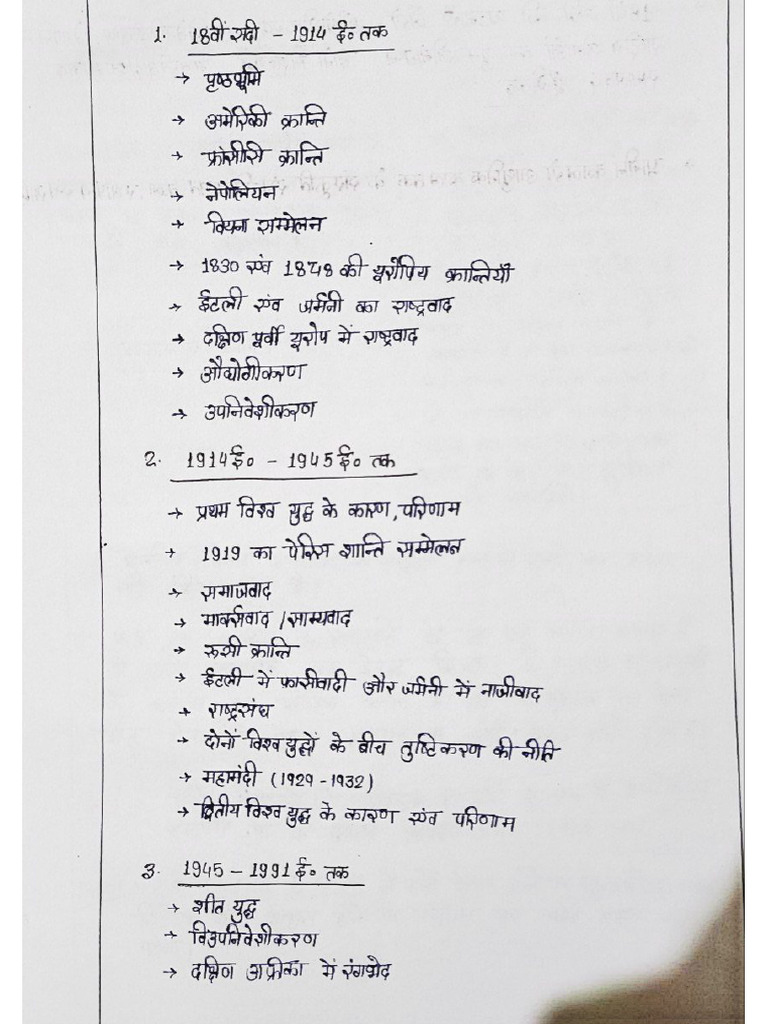 1. 18वीं सदी - 1914 ई० तक
→ पृष्ठभूमि
→ अमेरिकी क्रान्ति
→ फ्रांसीसी क्रान्ति
→ नेपोलियन
→ वियना सम्मेलन
→ 1830 एवं 1848 की यूरोपिय क्रान्तियाँ
→ ईटली एवं जर्मनी का राष्ट्रवाद
→ दक्षिण पूर्वी यूरोप में राष्ट्रवाद
→ औद्योगीकरण
→ उपनिवेशीकरण
2. 1914ई० - 1945ई० तक
→ प्रथम विश्व युद्ध के कारण, परिणाम
→ 1919 का पेरिस शान्ति सम्मेलन
→ समाजवाद
→ मार्क्सवाद / साम्यवाद
→ रूसी क्रान्ति
→ ईटली में फासीवादी और जर्मनी में नाजीवाद
→ राष्ट्रसंघ
→ दोनों विश्व युद्धों के बीच तुष्टिकरण की नीति
→ महामंदी (1929 - 1932)
→ द्वितीय विश्व युद्ध के कारण एवं परिणाम
3. 1945 - 1991 ई० तक
→ शीत युद्ध
→ विउपनिवेशीकरण
→ दक्षिण अफ्रीका में रंगभेद